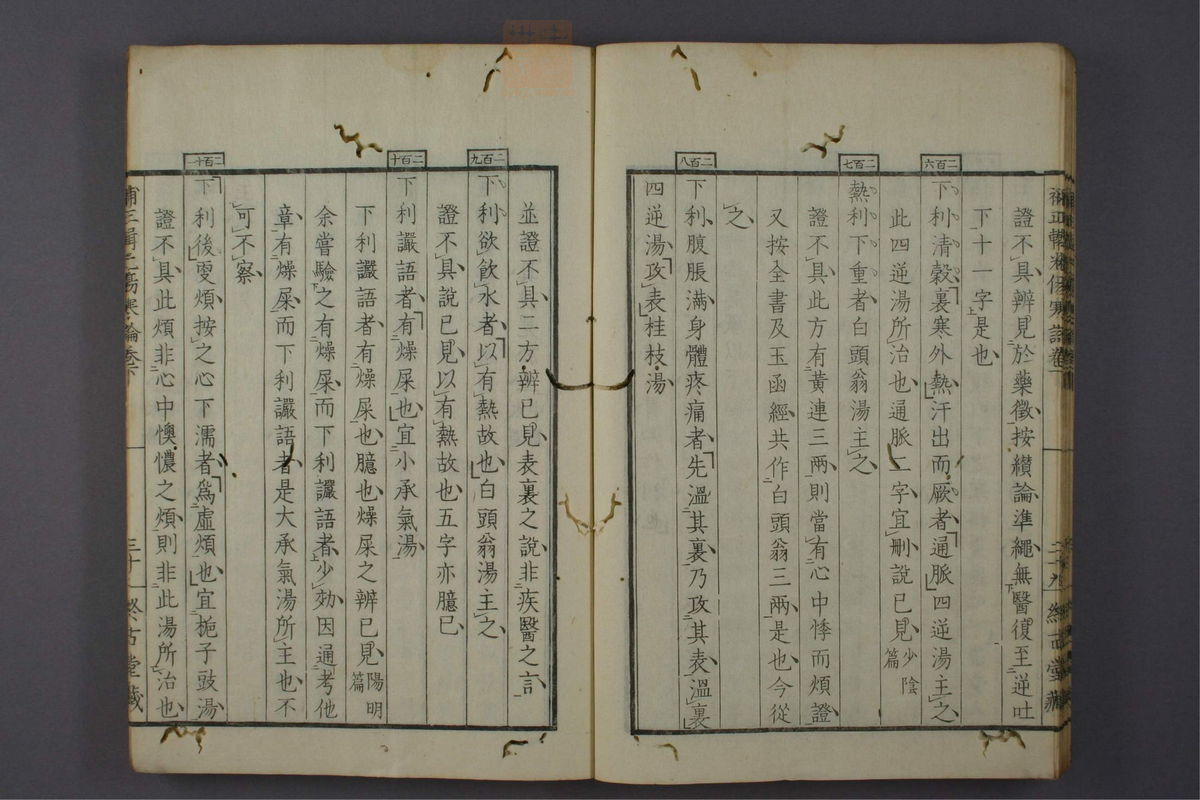 二百六
二百七
二百八
證不具辨見於藥徵按纉論準繩無醫復至逆吐
下十一字是也
下利清穀裏寒外熱汗出而厥者通脈四逆湯主之
此四逆湯所治也通脈二字宜刪說已見少陰篇
熱利下重者白頭翁湯主之
證不具此方有黃連三兩則當有心中悸而煩證
又按全書及玉函經共作白頭翁三兩是也今從
之
下利腹脹滿身體疼痛者先溫其裏乃攻其表溫裏
四逆湯攻表桂枝湯
二百九
二百十
二百十一
並證不具二方辨已見表裏之說非疾醫之言
下利欲飲水者以有熱故也白頭翁湯主之
證不具說已見以有熱故也五字亦臆已
下利讝語者有燥屎也宜小承氣湯
下利讝語者有燥屎也臆也燥屎之辨已見陽明篇
余嘗驗之有燥屎而下利讝語者少効因通考他
章有燥屎而下利讝語者是大承氣湯所主也不
可不察
下利後更煩按之心下濡者爲虛煩也宜梔子豉湯
證不具此煩非心中懊憹之煩則非此湯所治也
三十
終古堂藏